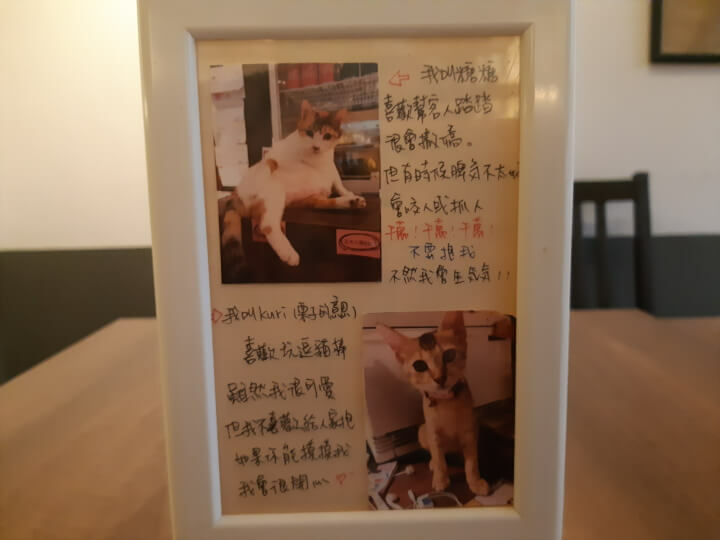 我叫糖糖
喜歡幫客人踏踏
很會撒嬌。
但有時候脾気不太好
會咬人或抓人
千萬!千萬!千萬!
不要抱我
不然我會生気気!!
我叫kuri(栗子的意思)
喜歡玩逗貓棒
雖然我很可愛
但我不喜歡給人家抱
如果你能摸摸我
我會很開心